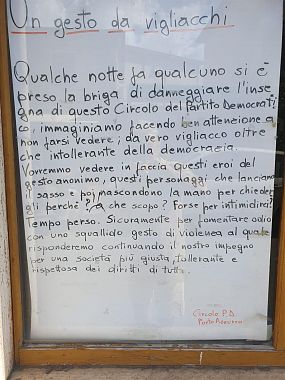 Un gesto da vigliacchi
Qualche notte fa qualcuno si è
preso la briga di danneggiare l'inse
gna di questo Circolo del Partito Democrati
co, immaginiamo facendo ben attenzione a
non farsi vedere; da vero vigliacco oltre
che intollerante della democrazia.
Vorremmo vedere in faccia questi eroi del
gesto anonimo, questi personaggi che lanciano
il sasso e poi nascondono la mano per chieder
gli perché? A che scopo? Forse per intimidirci?
Tempo perso. Sicuramente per fomentare odio
con uno squallido gesto di violenza al quale
risponderemo continuando il nostro impegno
per una società più giusta, tollerante e
rispettosa dei diritti di tutti.
Circolo P.D.
Porto Azzurro